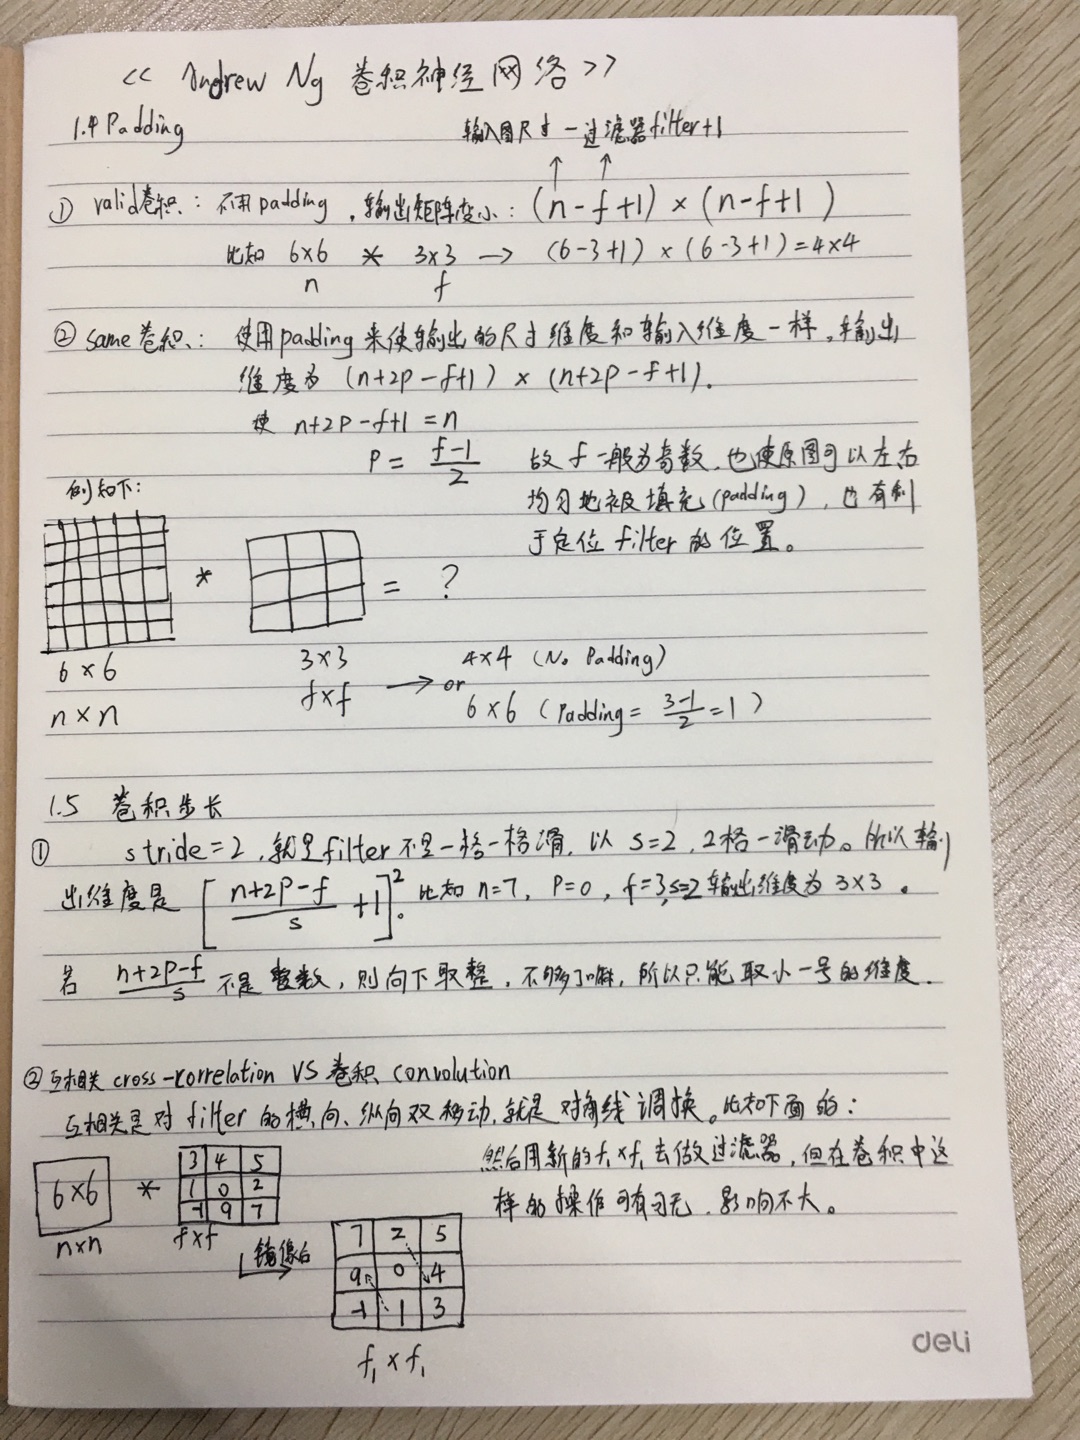 << Andrew Ng 卷积神经网络 >>
1.4 Padding
输入图尺寸 - 过滤器filter+1
① valid卷积: 不用padding,输出矩阵变小: (n-f+1) × (n-f+1)
比如 6×6 * 3×3 → (6-3+1) × (6-3+1) = 4×4
n f
② same卷积: 使用padding来使输出的尺寸维度和输入维度一样,输出
维度为 (n+2P-f+1) × (n+2P-f+1).
使 n+2P-f+1 = n
P = (f-1)/2 故 f 一般为奇数,也使原图可以左右
例如下: 均匀地被填充(padding),也有利
于定位 filter 的位置。
* = ?
6 × 6 3×3 4×4 (No Padding)
n × n f×f → or
6×6 (Padding = (3-1)/2 = 1)
1.5 卷积步长
① stride=2,就是filter不是一格一格滑,以 s=2, 2格一滑动。所以输
出维度是 [(n+2P-f)/s + 1]²。比如 n=7, P=0, f=3,s=2 输出维度为 3×3。
若 (n+2P-f)/s 不是整数,则向下取整,不够了嘛,所以只能取小一号的维度.
② 互相关 cross-correlation VS 卷积 convolution
互相关是对 filter 的横向、纵向双移动,就是对角线调换。比如下面的:
6×6 * 3 4 5 然后用新的f₁×f₁去做过滤器,但在卷积中这
1 0 2 样的操作可有可无,影响不大。
-1 9 7
n×n f×f
镜像后
7 2 5
9 0 4
-1 1 3
f₁ × f₁
deli